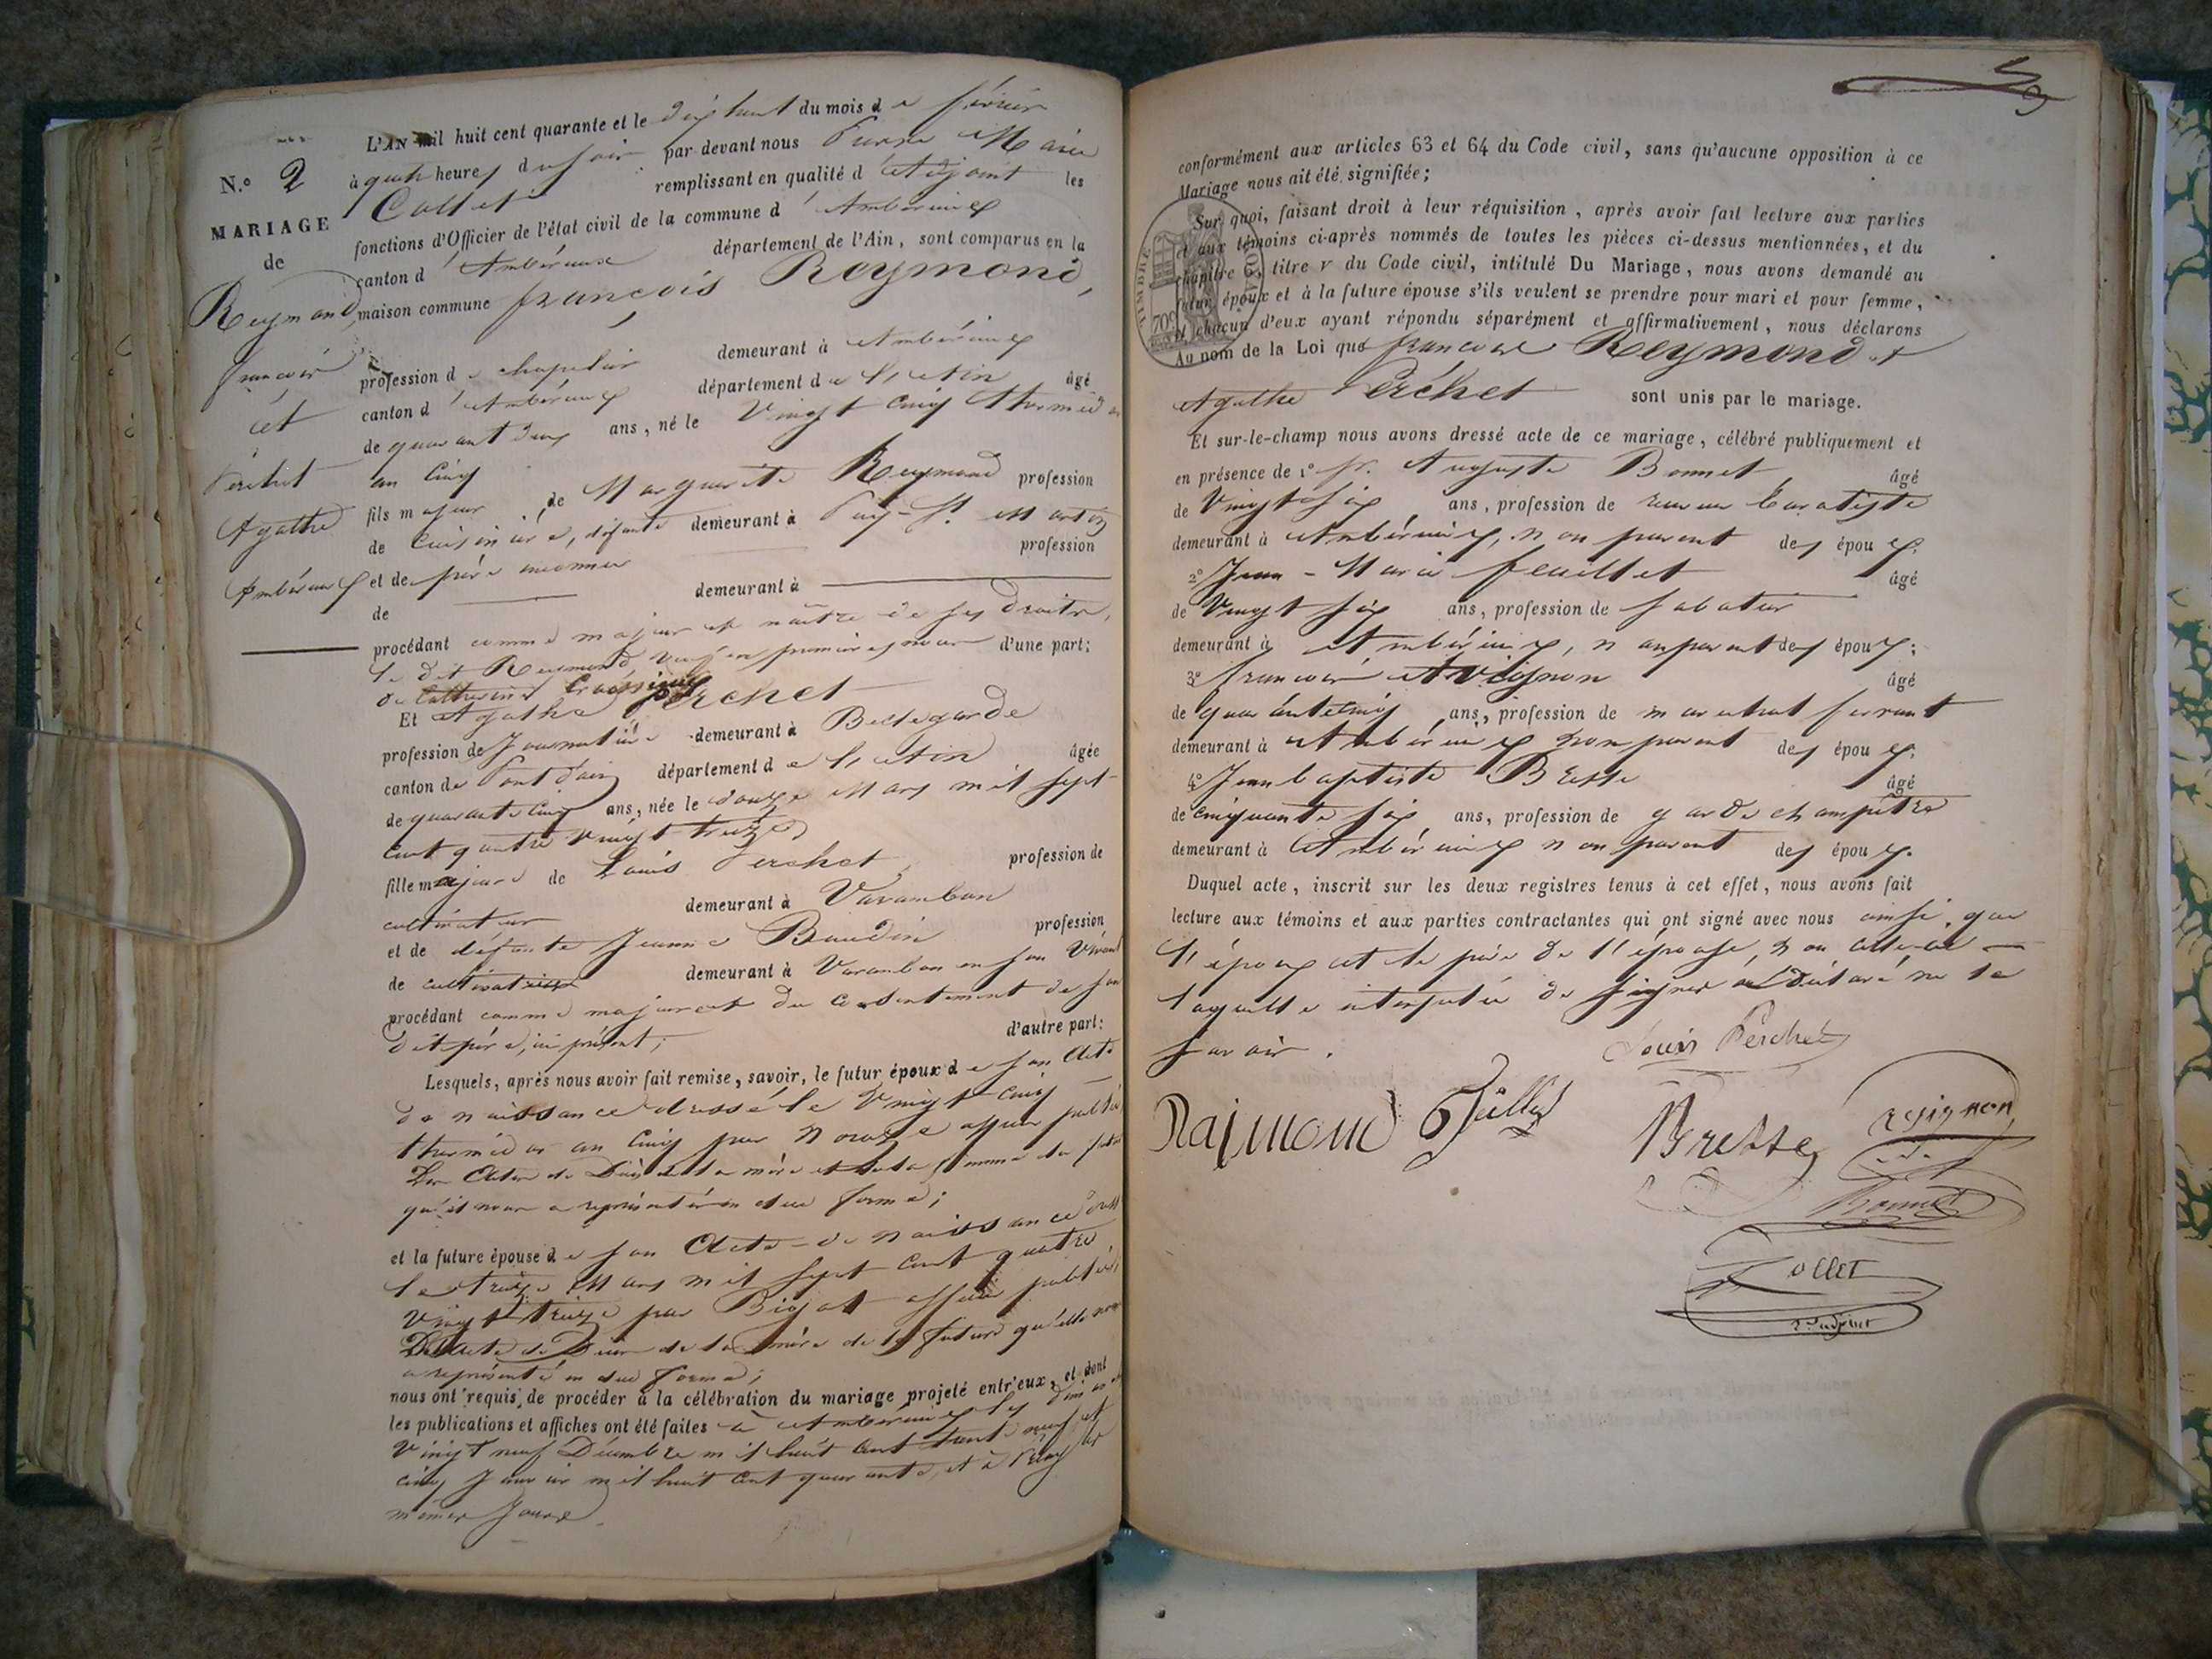 N.º 2
MARIAGE
de
Reymond,
françois
et
Perchet
Agathe
Ambérieux
L'AN mil huit cent quarante et le dix huit du mois de février
à quatre heures du soir par-devant nous Pierre Marie
Collet remplissant en qualité d'Adjoint les
fonctions d'Officier de l'état civil de la commune d'Ambérieux
canton d'Ambérieux département de l'Ain, sont comparus en la
maison commune françois Reymond,
profession de chapelier demeurant à Ambérieux
canton d'Ambérieux département de l'Ain âgé
de quarant deux ans, né le Vingt cinq thermidor
an Cinq
fils majeur de Marguerite Reymond profession
de Cuisinière, défunte demeurant à Puy-St. Martin
et de père inconnu profession
de demeurant à
procédant comme majeur et maître de ses droits,
le dit Reymond, veuf en premières noces d'une part;
de Catherine
Et Agathe Perchet
profession de Journalière demeurant à Bellegarde
canton de Pont d'ain département de l'Ain âgée
de quarante cinq ans, née le douze Mars mil sept
cent quatre vingt treize
fille majeure de Louis Perchet, profession de
cultivateur demeurant à Varambon
et de défunte Jeanne Baudin profession
de cultivatrice demeurant à Varambon en son Vivant
procédant comme majeure et du consentement de son
dit père, ici présent; d'autre part:
Lesquels, après nous avoir fait remise, savoir, le futur époux de son Acte
de naissance dressé le Vingt cinq
thermidor an Cinq par officier public
Des Actes de Décès de la mère et de la femme du futur
qu'il nous a représentés en due forme;
et la future épouse de son Acte de naissance dressé
le treize Mars mil sept cent quatre
vingt treize par officier public,
De l'acte de Décès de la mère de la future qu'elle nous
a représenté en due forme;
nous ont requis de procéder à la célébration du mariage projeté entr'eux, et dont
les publications et affiches ont été faites à Ambérieux les
Vingt neuf Décembre mil huit cent trente neuf et
cinq Janvier mil huit cent quarante, et à
mêmes Jours
conformément aux articles 63 et 64 du Code civil, sans qu'aucune opposition à ce
Mariage nous ait été signifiée;
Sur quoi, faisant droit à leur réquisition, après avoir fait lecture aux parties
et aux témoins ci-après nommés de toutes les pièces ci-dessus mentionnées, et du
chapitre 6, titre v du Code civil, intitulé Du Mariage, nous avons demandé au
futur époux et à la future épouse s'ils veulent se prendre pour mari et pour femme,
et chacun d'eux ayant répondu séparément et affirmativement, nous déclarons
Au nom de la Loi que françois Reymond et
Agathe Perchet sont unis par le mariage.
Et sur-le-champ nous avons dressé acte de ce mariage, célébré publiquement et
en présence de 1º Auguste Bonnet, âgé
de Vingt six ans, profession de receveur buraliste
demeurant à Ambérieux, non parent des époux.
2º Jean-Marie feuillet âgé
de Vingt six ans, profession de sabotier
demeurant à Ambérieux, non parent des époux;
3º françois Avignon âgé
de quarante cinq ans, profession de maréchal ferrant
demeurant à Ambérieux non parent des époux.
4º Jean baptiste Bresse âgé
de cinquante six ans, profession de garde champêtre
demeurant à Ambérieux non parent des époux.
Duquel acte, inscrit sur les deux registres tenus à cet effet, nous avons fait
lecture aux témoins et aux parties contractantes qui ont signé avec nous ainsi que
l'époux et le père de l'épouse, non celle-ci
laquelle interpellée de signer a Déclaré ne le
savoir.
Louis Perchet
Raimond
Bresse
Bonnet
Collet